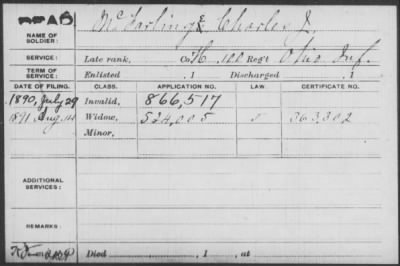 NAME OF SOLDIER: McFarling, Charles J.
SERVICE: Late rank, Co. H, 100 Reg't Ohio Inf.
TERM OF SERVICE: Enlisted , 1 Discharged , 1
DATE OF FILING. CLASS. APPLICATION NO. LAW. CERTIFICATE NO.
1890, July 29 Invalid, 866,517
1891 Aug 14 Widow, 524,005 363,302
Minor,
ADDITIONAL SERVICES:
REMARKS:
Died , 1 , at